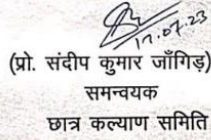 17.07.23
(प्रो. संदीप कुमार जाँगिड़)
समन्वयक
छात्र कल्याण समिति